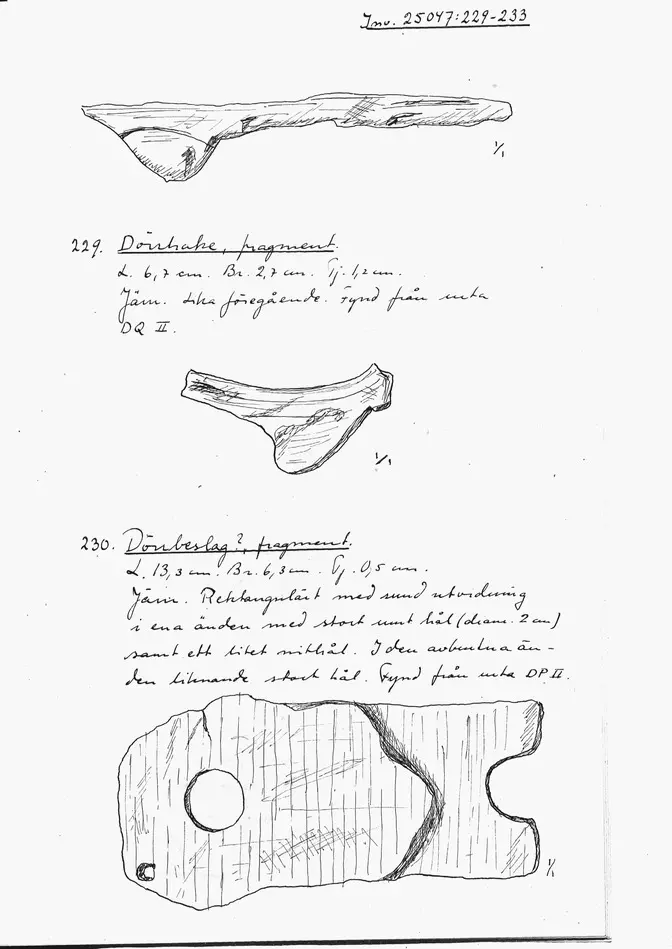 Inv. 25047:229-233
1/1
229. Dörrhake, fragment.
L. 6,7 cm. Br. 2,7 cm. Tj. 1,2 cm.
Järn. Lika föregående. Fynd från ruta
DQ II.
1/1
230. Dörrbeslag?, fragment.
L. 13,3 cm. Br. 6,3 cm. Tj. 0,5 cm.
Järn. Rektangulärt med rund utvidgning
i ena änden med stort runt hål (diam. 2 cm)
samt ett litet nithål. I den avbrutna än-
den liknande stort hål. Fynd från ruta DP II.
1/1